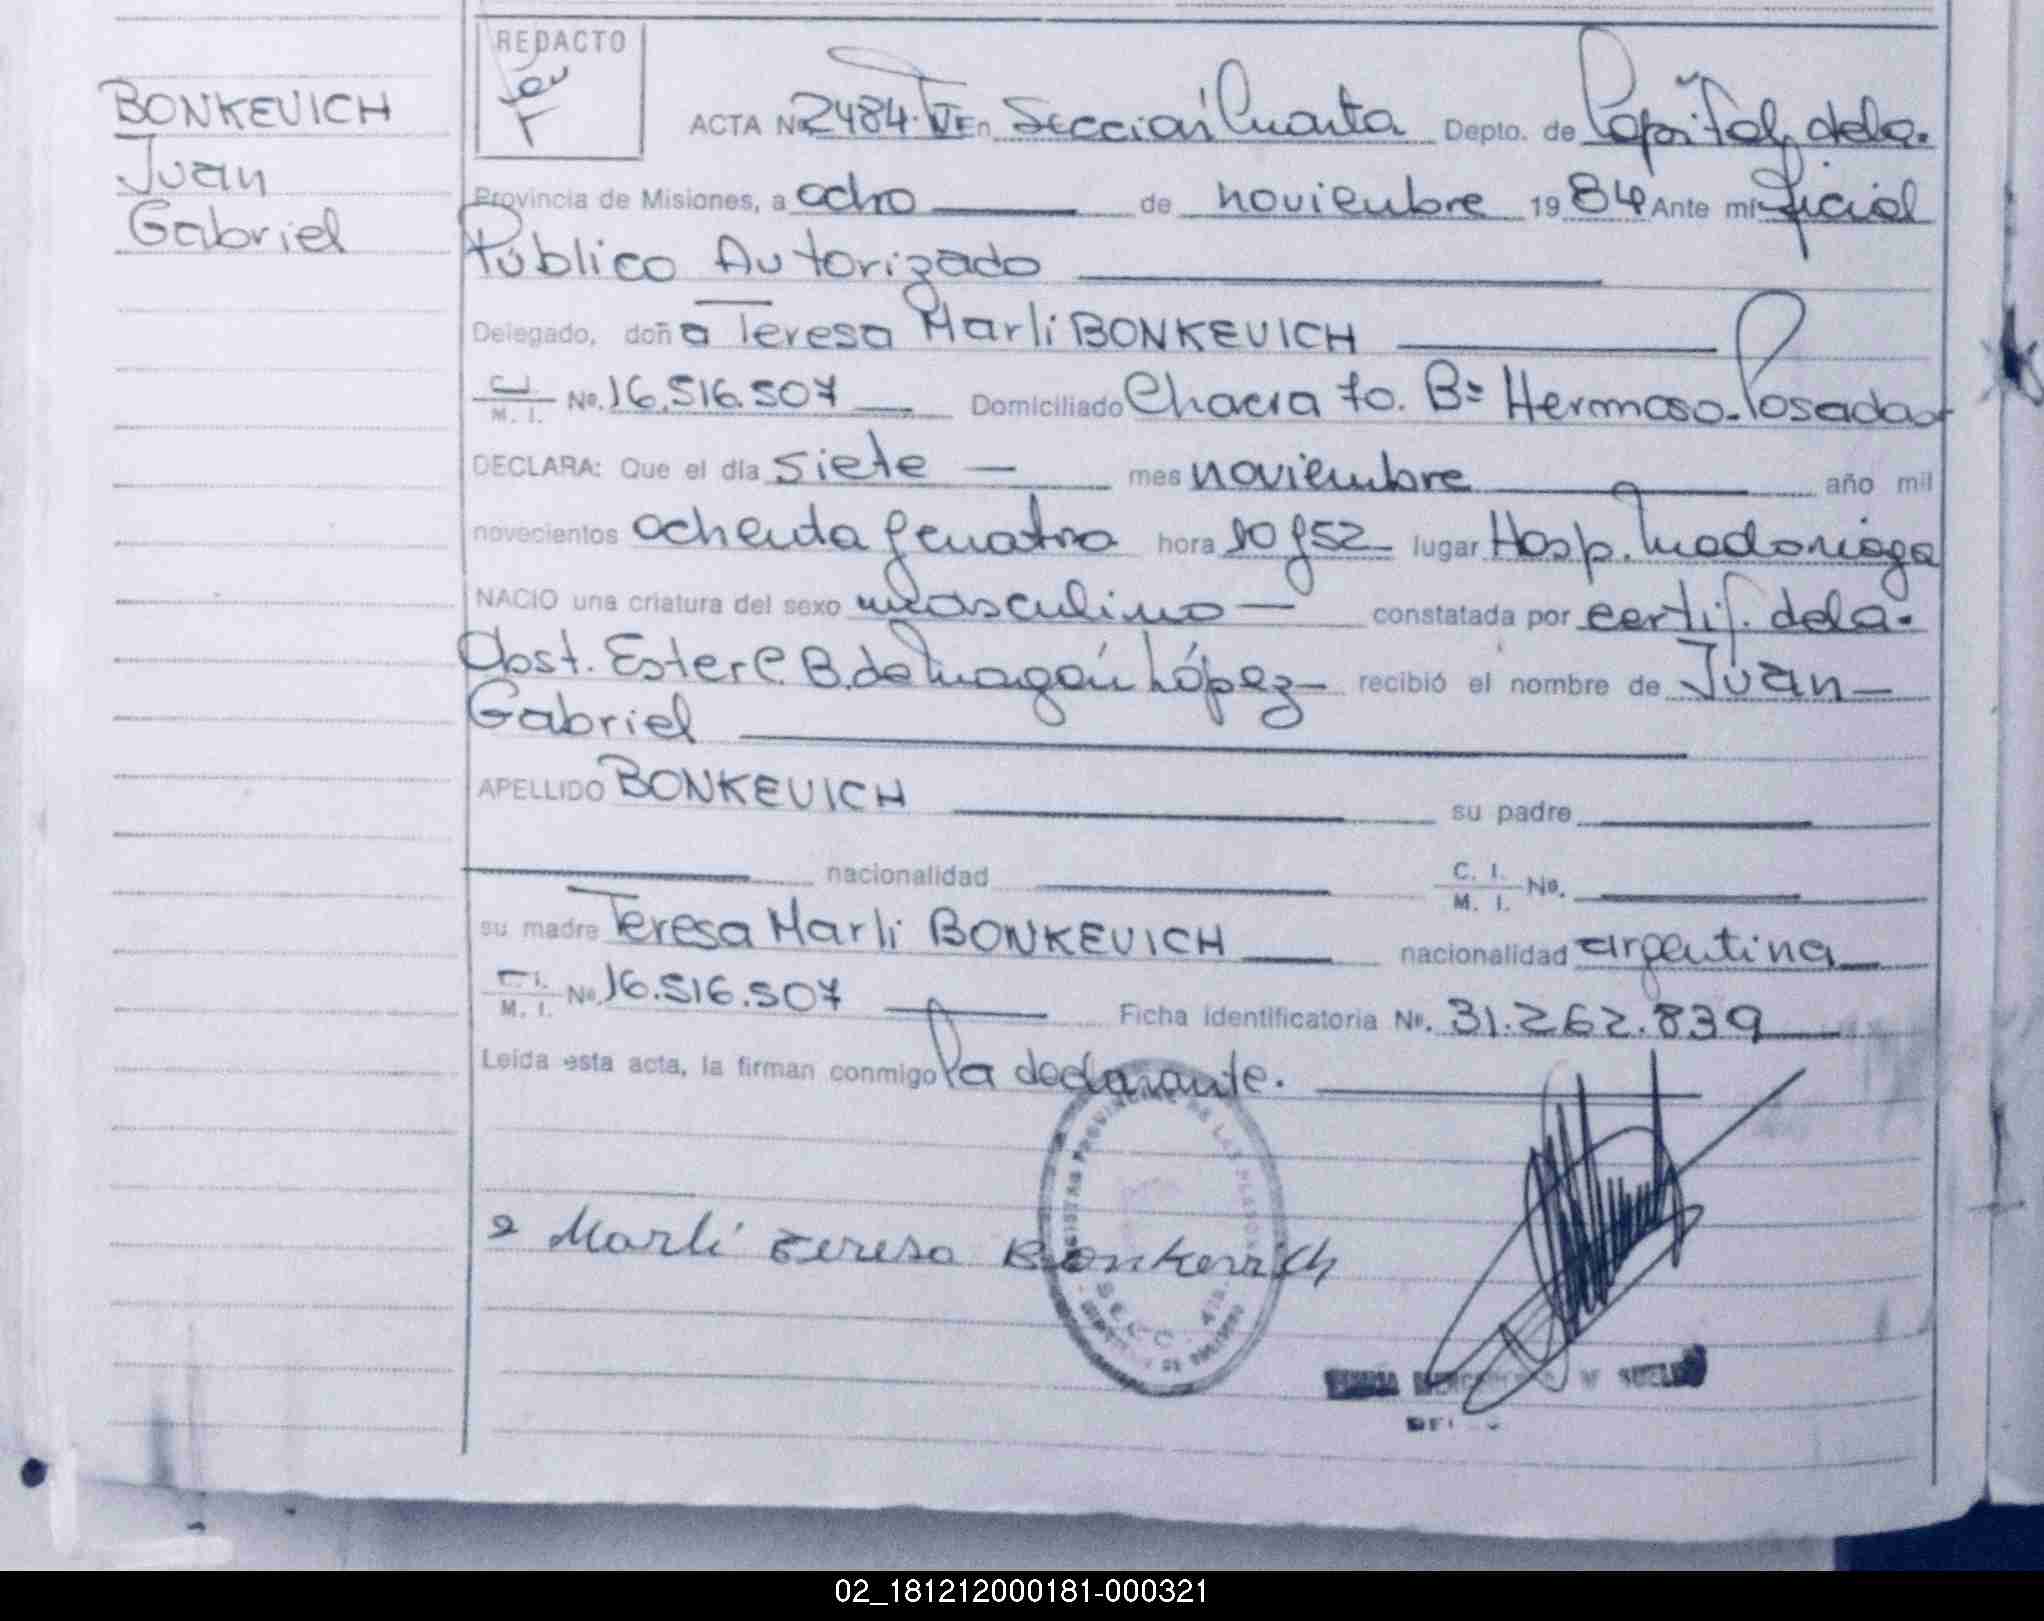 REDACTO
BONKEVICH
Juan
Gabriel
ACTA Nº 2484. En Sección Cuarta Depto. de Capital, de la.
Provincia de Misiones, a ocho de noviembre 1984 Ante mi Oficial
Público Autorizado
Delegado, doña Teresa Marli BONKEVICH
M. I. Nº. 16.516.507 Domiciliado Chacra 70. Bº Hermoso. Posadas
DECLARA: Que el día siete mes noviembre año mil
novecientos ochenta y cuatro hora 10 y 52 lugar Hosp. Madariaga
NACIO una criatura del sexo masculino constatada por certif. de la.
Obst. Ester C. B. de Magán López recibió el nombre de Juan
Gabriel
APELLIDO BONKEVICH su padre
nacionalidad C. I. M. I. Nº.
su madre Teresa Marli BONKEVICH nacionalidad argentina
M. I. Nº. 16.516.507 Ficha identificatoria Nº. 31.262.839
Leída esta acta, la firman conmigo la declarante.
Marli Teresa Bonkevich
02_181212000181-000321